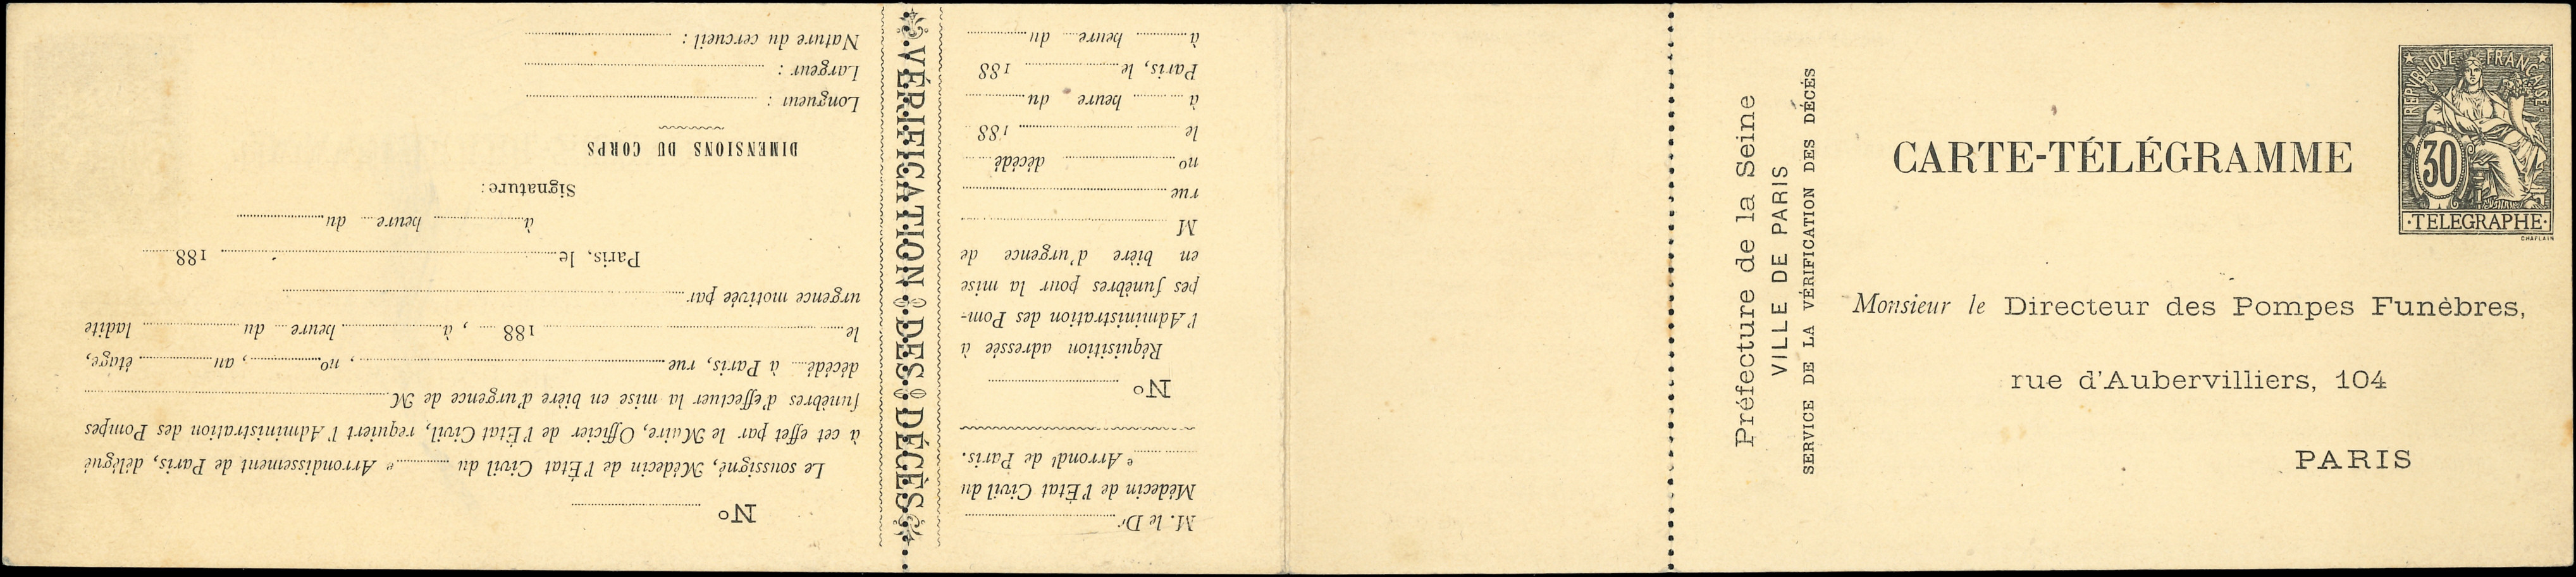 Préfecture de la Seine
VILLE DE PARIS
SERVICE DE LA VÉRIFICATION DES DÉCÈS
CARTE-TÉLÉGRAMME
RÉPUBLIQUE FRANÇAISE
30
TELEGRAPHE
CHAPLAIN
Monsieur le Directeur des Pompes Funèbres,
rue d'Aubervilliers, 104
PARIS
M. le Dr
Médecin de l'État Civil du
e Arrondt de Paris.
No
Réquisition adressée à
l'Administration des Pom-
pes funèbres pour la mise
en bière d'urgence de
M
rue
no décédé
le 188
à heure du
Paris, le 188
à heure du
VÉRIFICATION DES DÉCÈS
No
Le soussigné, Médecin de l'État Civil du e Arrondissement de Paris, délégué
à cet effet par le Maire, Officier de l'État Civil, requiert l'Administration des Pompes
funèbres d'effectuer la mise en bière d'urgence de M
décédé à Paris, rue , no , au étage,
le 188 , à heure du ladite
urgence motivée par
Paris, le 188
à heure du
Signature :
DIMENSIONS DU CORPS
Longueur :
Largeur :
Nature du cercueil :